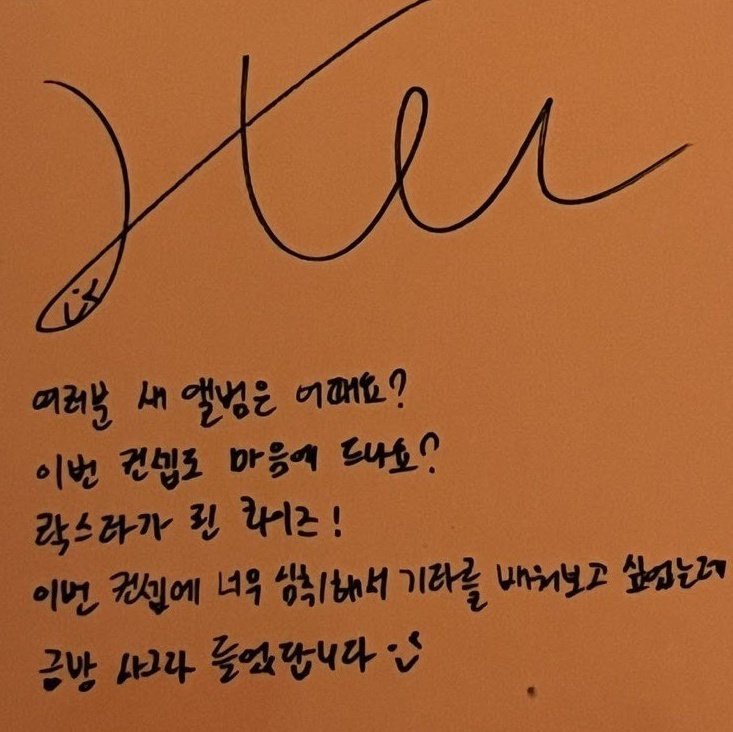 여러분 새 앨범은 어때요?
이번 컨셉도 마음에 드나요?
락스타가 된 라이즈!
이번 컨셉에 너무 심취해서 기타를 배워보고 싶었는데
금방 사그라 들었답니다